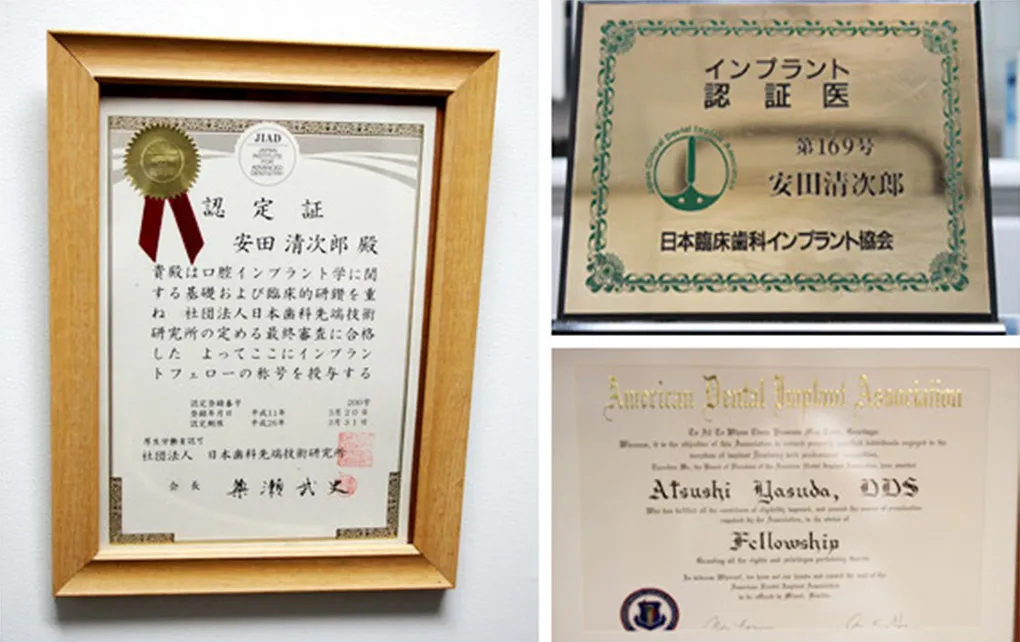 JIAD
JAPAN
INSTITUTE
FOR
ADVANCED
DENTISTRY
認定証
安田 清次郎 殿
貴殿は口腔インプラント学に関
する基礎および臨床的研鑽を重
ね 社団法人日本歯科先端技術
研究所の定める最終審査に合格
した よってここにインプラン
トフェローの称号を授与する
認定登録番号 200号
登録年月日 平成11年 3月20日
認定期限 平成26年 3月31日
厚生労働省認可
社団法人 日本歯科先端技術研究所
会長 築瀬武史
インプラント
認証医
第169号
安田清次郎
日本臨床歯科インプラント協会
American Dental Implant Association
To All To Whom These Presents May Come, Greetings:
Atsushi Yasuda, DDS
Fellowship
Granting all the rights and privileges pertaining thereto.
In witness Whereof, we have set our hands and caused the seal of the
American Dental Implant Association